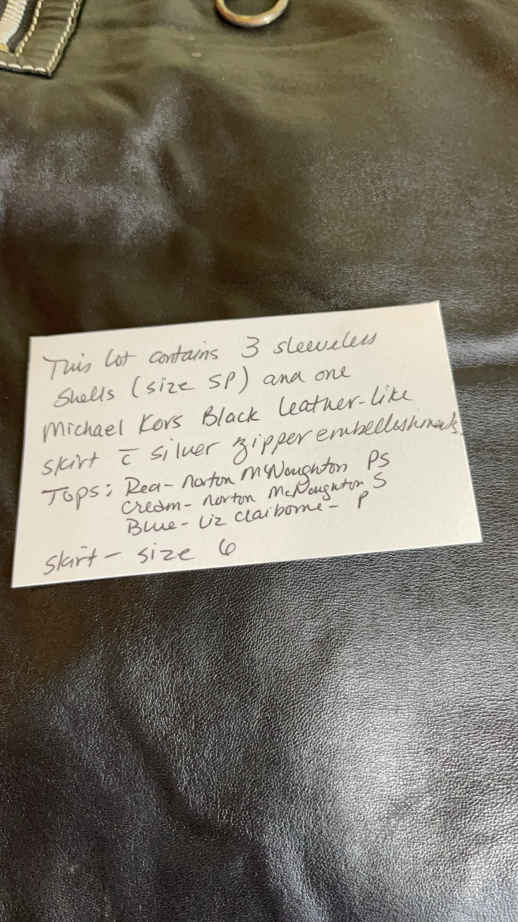 This Lot contains 3 sleeveless
Shells (size SP) and one
Michael Kors Black Leather-Like
skirt c̄ silver zipper embellishments.
Tops: Red- Norton McNaughton PS
Cream- Norton McNaughton S
Blue- Liz Claiborne- P
Skirt- size 6